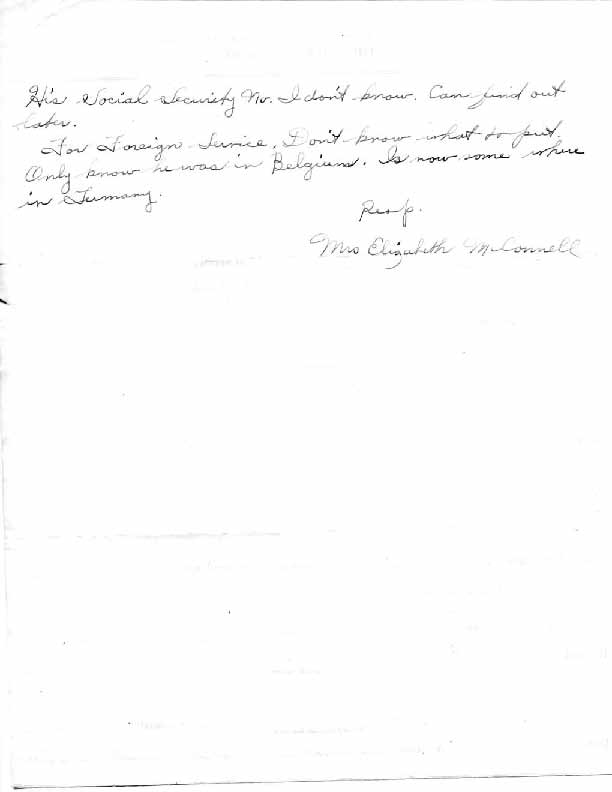 His Social Security No. I don't know. Can find out
later.
For Foreign Service, Don't know what to put.
Only know he was in Belgium. Is now some where
in Germany.
Resp.
Mrs Elizabeth McConnell